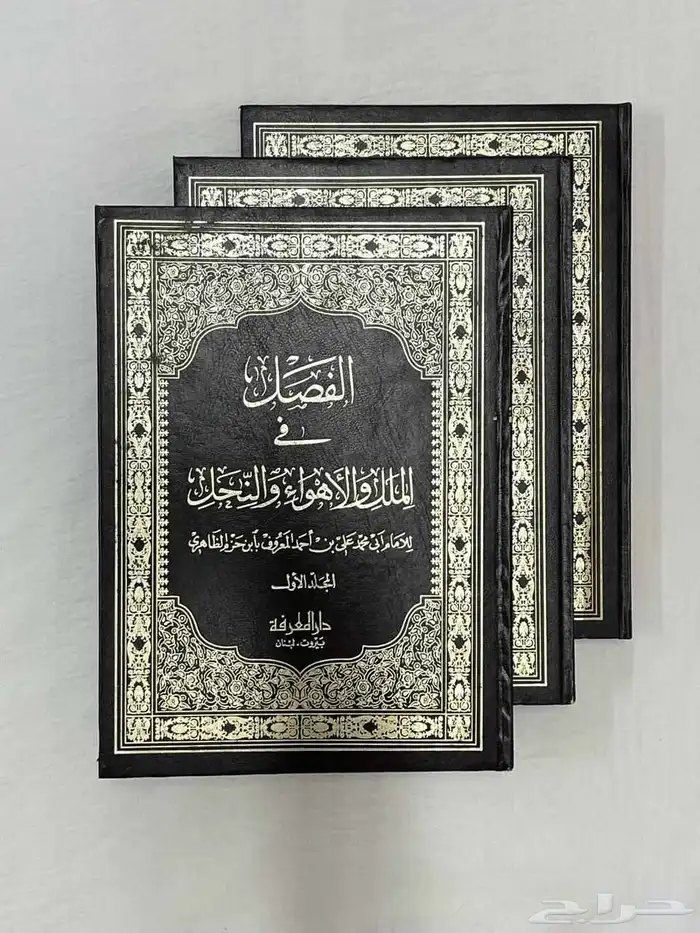 الفصل
في
الملل والأهواء والنحل
للامام ابى محمد على بن أحمد المعروف بابن حزم الظاهري
المجلد الأول
دار المعرفة
بيروت - لبنان
حراج